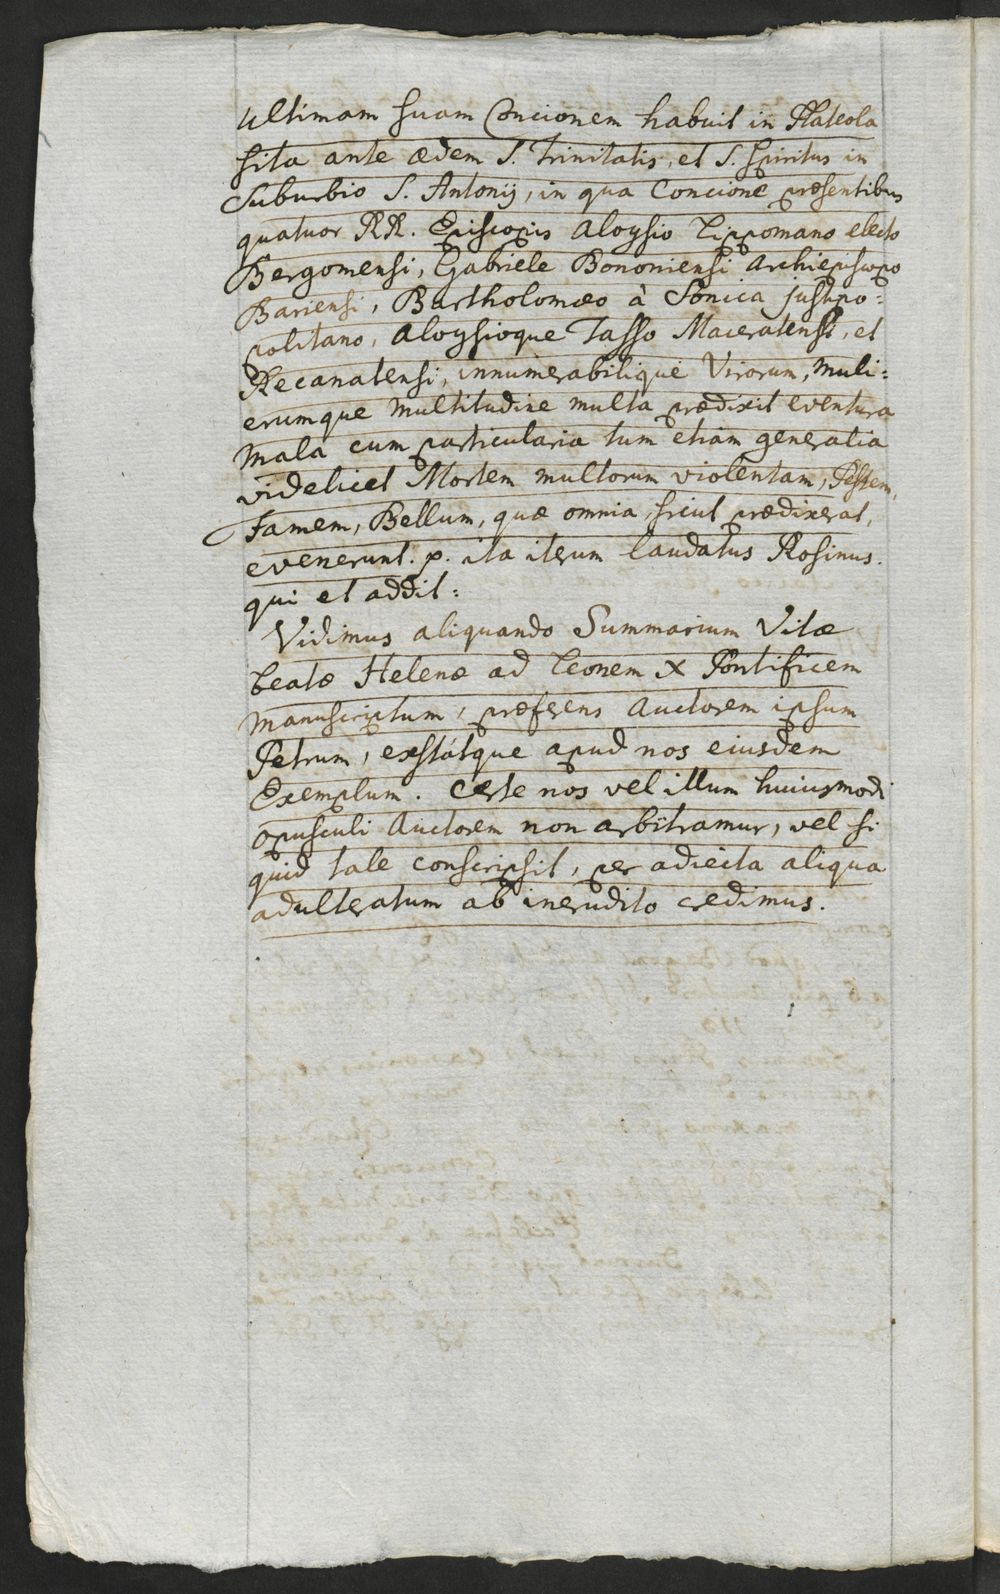 Ultimam suam Concionem habuit in Plateola
sita ante ædem S. Trinitatis, et S. Spiritus in
Suburbio S. Antonij, in qua Concione præsentibus
quatuor RR. Episcopis Aloysio Lippomano electo
Bergomensi, Gabriele Bononiensi Archiepiscopo
Bariensi, Bartholomæo à Sonica Justipo=
politano, Aloysioque Tasso Maceratensi, et
Recanatensi, innumerabilique Virorum, muli=
erumque multitudine multa prædixit eventura
mala cum particularia tum etiam generalia
videlicet Mortem multorum violentam, Pestem,
Famem, Bellum, quæ omnia, sicut prædixerat,
evenerunt. p. ita iterum laudatus Rosinus.
qui et addit:
Vidimus aliquando Summarium Vitæ
beatæ Helenæ ad Leonem X Pontificem
manuscriptum, præferens Auctorem ipsum
Petrum, exstátque apud nos eiusdem
Exemplum. Certe nos vel illum huiusmodi
opusculi Auctorem non arbitramur, vel si
quid tale conscripsit, per adiecta aliqua
adulteratum ab inerudito credimus.